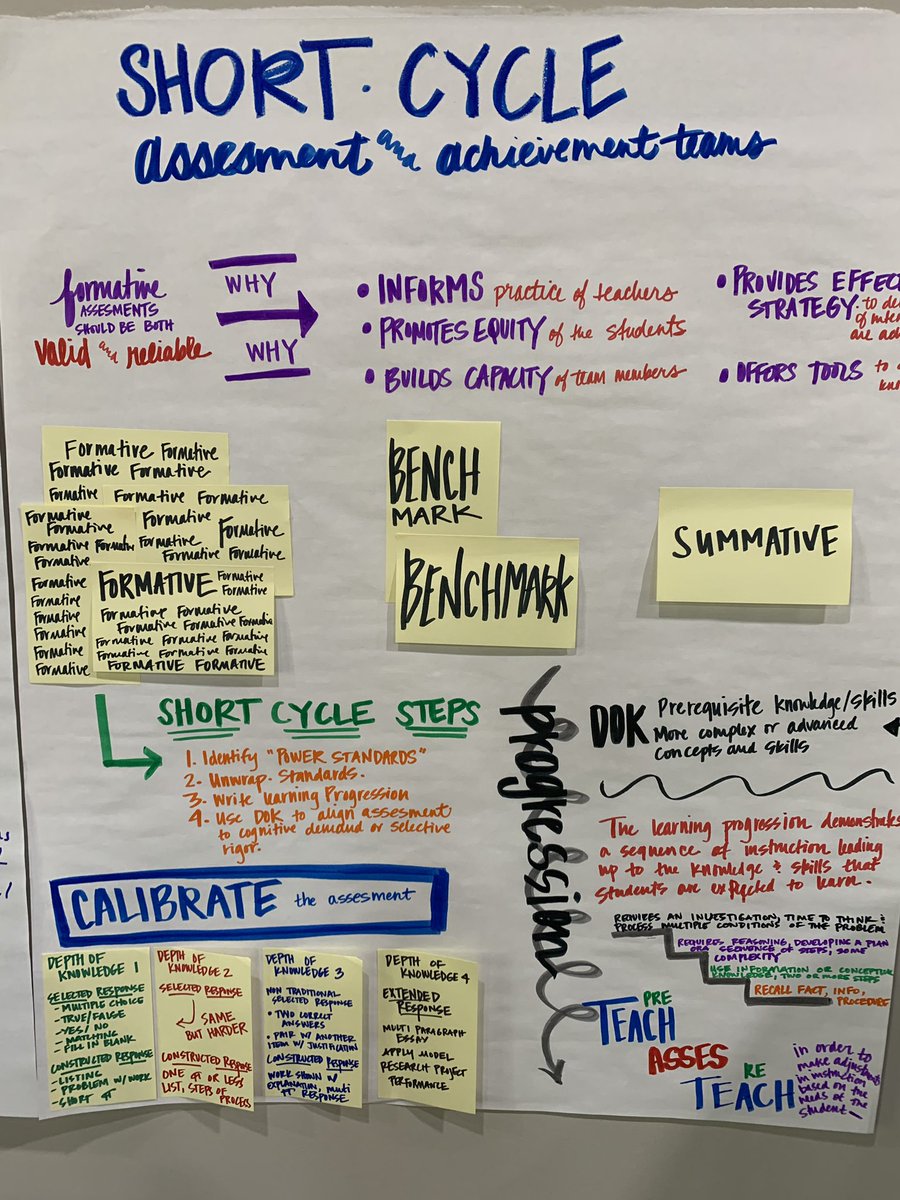 SHORT. CYCLE
assesment and achievement teams
formative
ASSESMENTS
SHOULD BE BOTH
valid and reliable
WHY
WHY
• INFORMS practice of teachers
• PROMOTES EQUITY of the students
• BUILDS CAPACITY of team members
• PROVIDES EFFEC
STRATEGY. to de
of inte
are ad
• OFFORS TOOLS to
kno
Formative Formative
Formative Formative
Formative
Formative Formative
Formative
Formative
Formative Formative
Formative Formative
Formative
Formative
Formative Formative
Formative
Formative
Formative
Formative
Formative
Formative
Formative
FORMATIVE Formative
Formative
Formative Formative
Formative Formative Formative
Formative Formative Formative
Formative Formative Formative
FORMATIVE FORMATIVE
BENCH
MARK
BENCHMARK
SUMMATIVE
SHORT CYCLE STEPS
1. Identify "POWER STANDARDS"
2. Unwrap Standards.
3. Write learning Progression
4. Use DOK to align assesment
to cognitive demand or selective
rigor.
progressional
DOK
Prerequisite knowledge/skills
More complex or advanced
concepts and skills
The learning progression demonstrates
a sequence of instruction leading
up to the knowledge & skills that
students are expected to learn.
REQUIRES AN INVESTIGATION, TIME TO THINK &
PROCESS MULTIPLE CONDITIONS OF THE PROBLEM
REQUIRES REASONING, DEVELOPING A PLAN
OR A SEQUENCE OF STEPS, SOME
COMPLEXITY
USE INFORMATION OR CONCEPTUAL
KNOWLEDGE, TWO OR MORE STEPS
RECALL FACT, INFO,
PROCEDURE
CALIBRATE the assesment
DEPTH OF
KNOWLEDGE 1
SELECTED RESPONSE
- MULTIPLE CHOICE
- TRUE/FALSE
- YES/NO
- MATCHING
- FILL IN BLANK
CONSTRUCTED RESPONSE
- LISTING
- PROBLEM W/ WORK
- SHORT ¶
DEPTH OF
KNOWLEDGE 2
SELECTED RESPONSE
SAME
BUT HARDER
CONSTRUCTED RESPONSE
ONE ¶ OR LESS
LIST, STEPS OF
PROCESS
DEPTH OF
KNOWLEDGE 3
NON TRADITIONAL
SELECTED RESPONSE
• TWO CORRECT
ANSWERS
• PAIR W/ ANOTHER
ITEM W/ JUSTIFICATION
CONSTRUCTED RESPONSE
WORK SHOWN W/
EXPLANATION, MULTI
¶ RESPONSE.
DEPTH OF
KNOWLEDGE 4
EXTENDED
RESPONSE
MULTI PARAGRAPH
ESSAY
APPLY MODEL
RESEARCH PROJECT
PERFORMANCE
PRE
TEACH
ASSES
RE
TEACH
in order to
make adjustments
in instruction
based on the
needs of the
student—